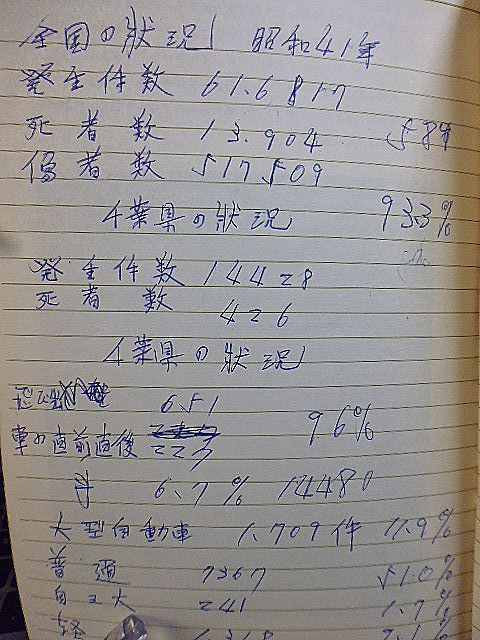 全国の狀況 昭和41年
発生件数 61.6817
死者数 13.904 58%
傷者数 517509
千葉県の狀況 933%
発生件数 14428
死者数 426
千葉県の狀況
651 96%
車の直前直後 223
6.7% 14480
大型自動車 1.709件 11.9%
普通 7367 51.0%
自工大 241 1.7%
軽